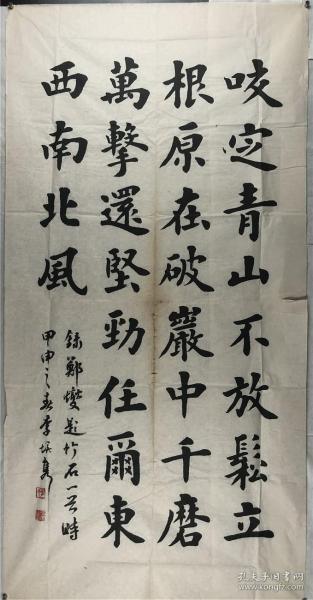 咬定青山不放鬆立
根原在破巖中千磨
萬擊還堅勁任爾東
西南北風
錄鄭燮題竹石一首時
甲申之春李
孔夫子旧书网
www.kongfz.com